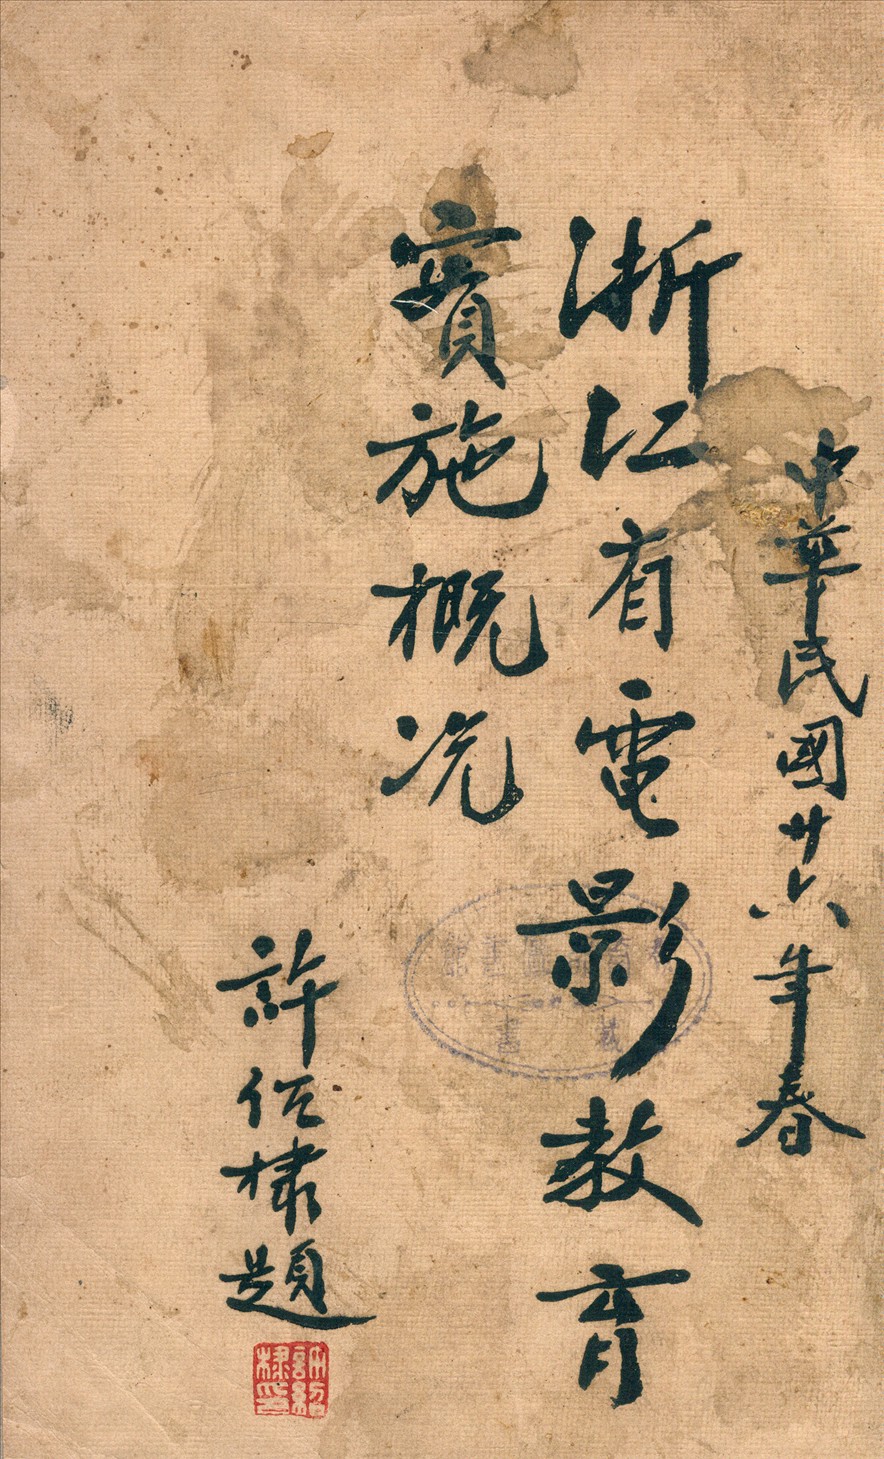 中華民國廿六年春
浙江省電影教育
實施概況
許紹棣題
許紹棣印
圖書館
藏書